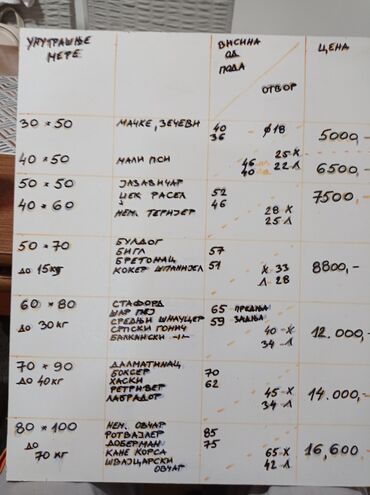 УНУТРАШЊЕ МЕРЕ
ВИСИНА ОД ПОДА
ОТВОР
ЦЕНА
30 × 50 МАЧКЕ, ЗЕЧЕВИ 40 36 Ø18 5000,-
40 × 50 МАЛИ ПСИ 46 40 25 X 22 Л 6500,-
50 × 50 ЈАЗАВИЧАР 52 7500-
40 × 60 ЏЕК РАСЕЛ 46
НЕМ. ТЕРИЈЕР 28 X 25 Л
50 × 70 БУЛДОГ 57
БИГЛ
БРЕТОНАЦ
ДО 15кg КОКЕР ШПАНИЈЕЛ 51 X 33 Л 28 8800,-
60 × 80 СТАФОРД 65 ПРЕДЊА
ШАР ПЕЈ
ДО 30 КГ СРЕДЊИ ШНАУЦЕР 59 ЗАДЊА
СРПСКИ ГОНИЧ 40 - X 12.000,-
БАЛКАНСКИ -"- 34 - Л
70 × 90 ДАЛМАТИНАЦ 70
ДО 40 КГ БОКСЕР
ХАСКИ 62
РЕТРИВЕР 45 - X 14.000,-
ЛАБРАДОР 34 Л
80 × 100 НЕМ. ОВЧАР 85
РОТВАЈЛЕР
ДО ДОБЕРМАН 75
70 КГ КАНЕ КОРСА 65 X 16,600,-
ШВАЈЦАРСКИ 42 Л
ОВЧАР